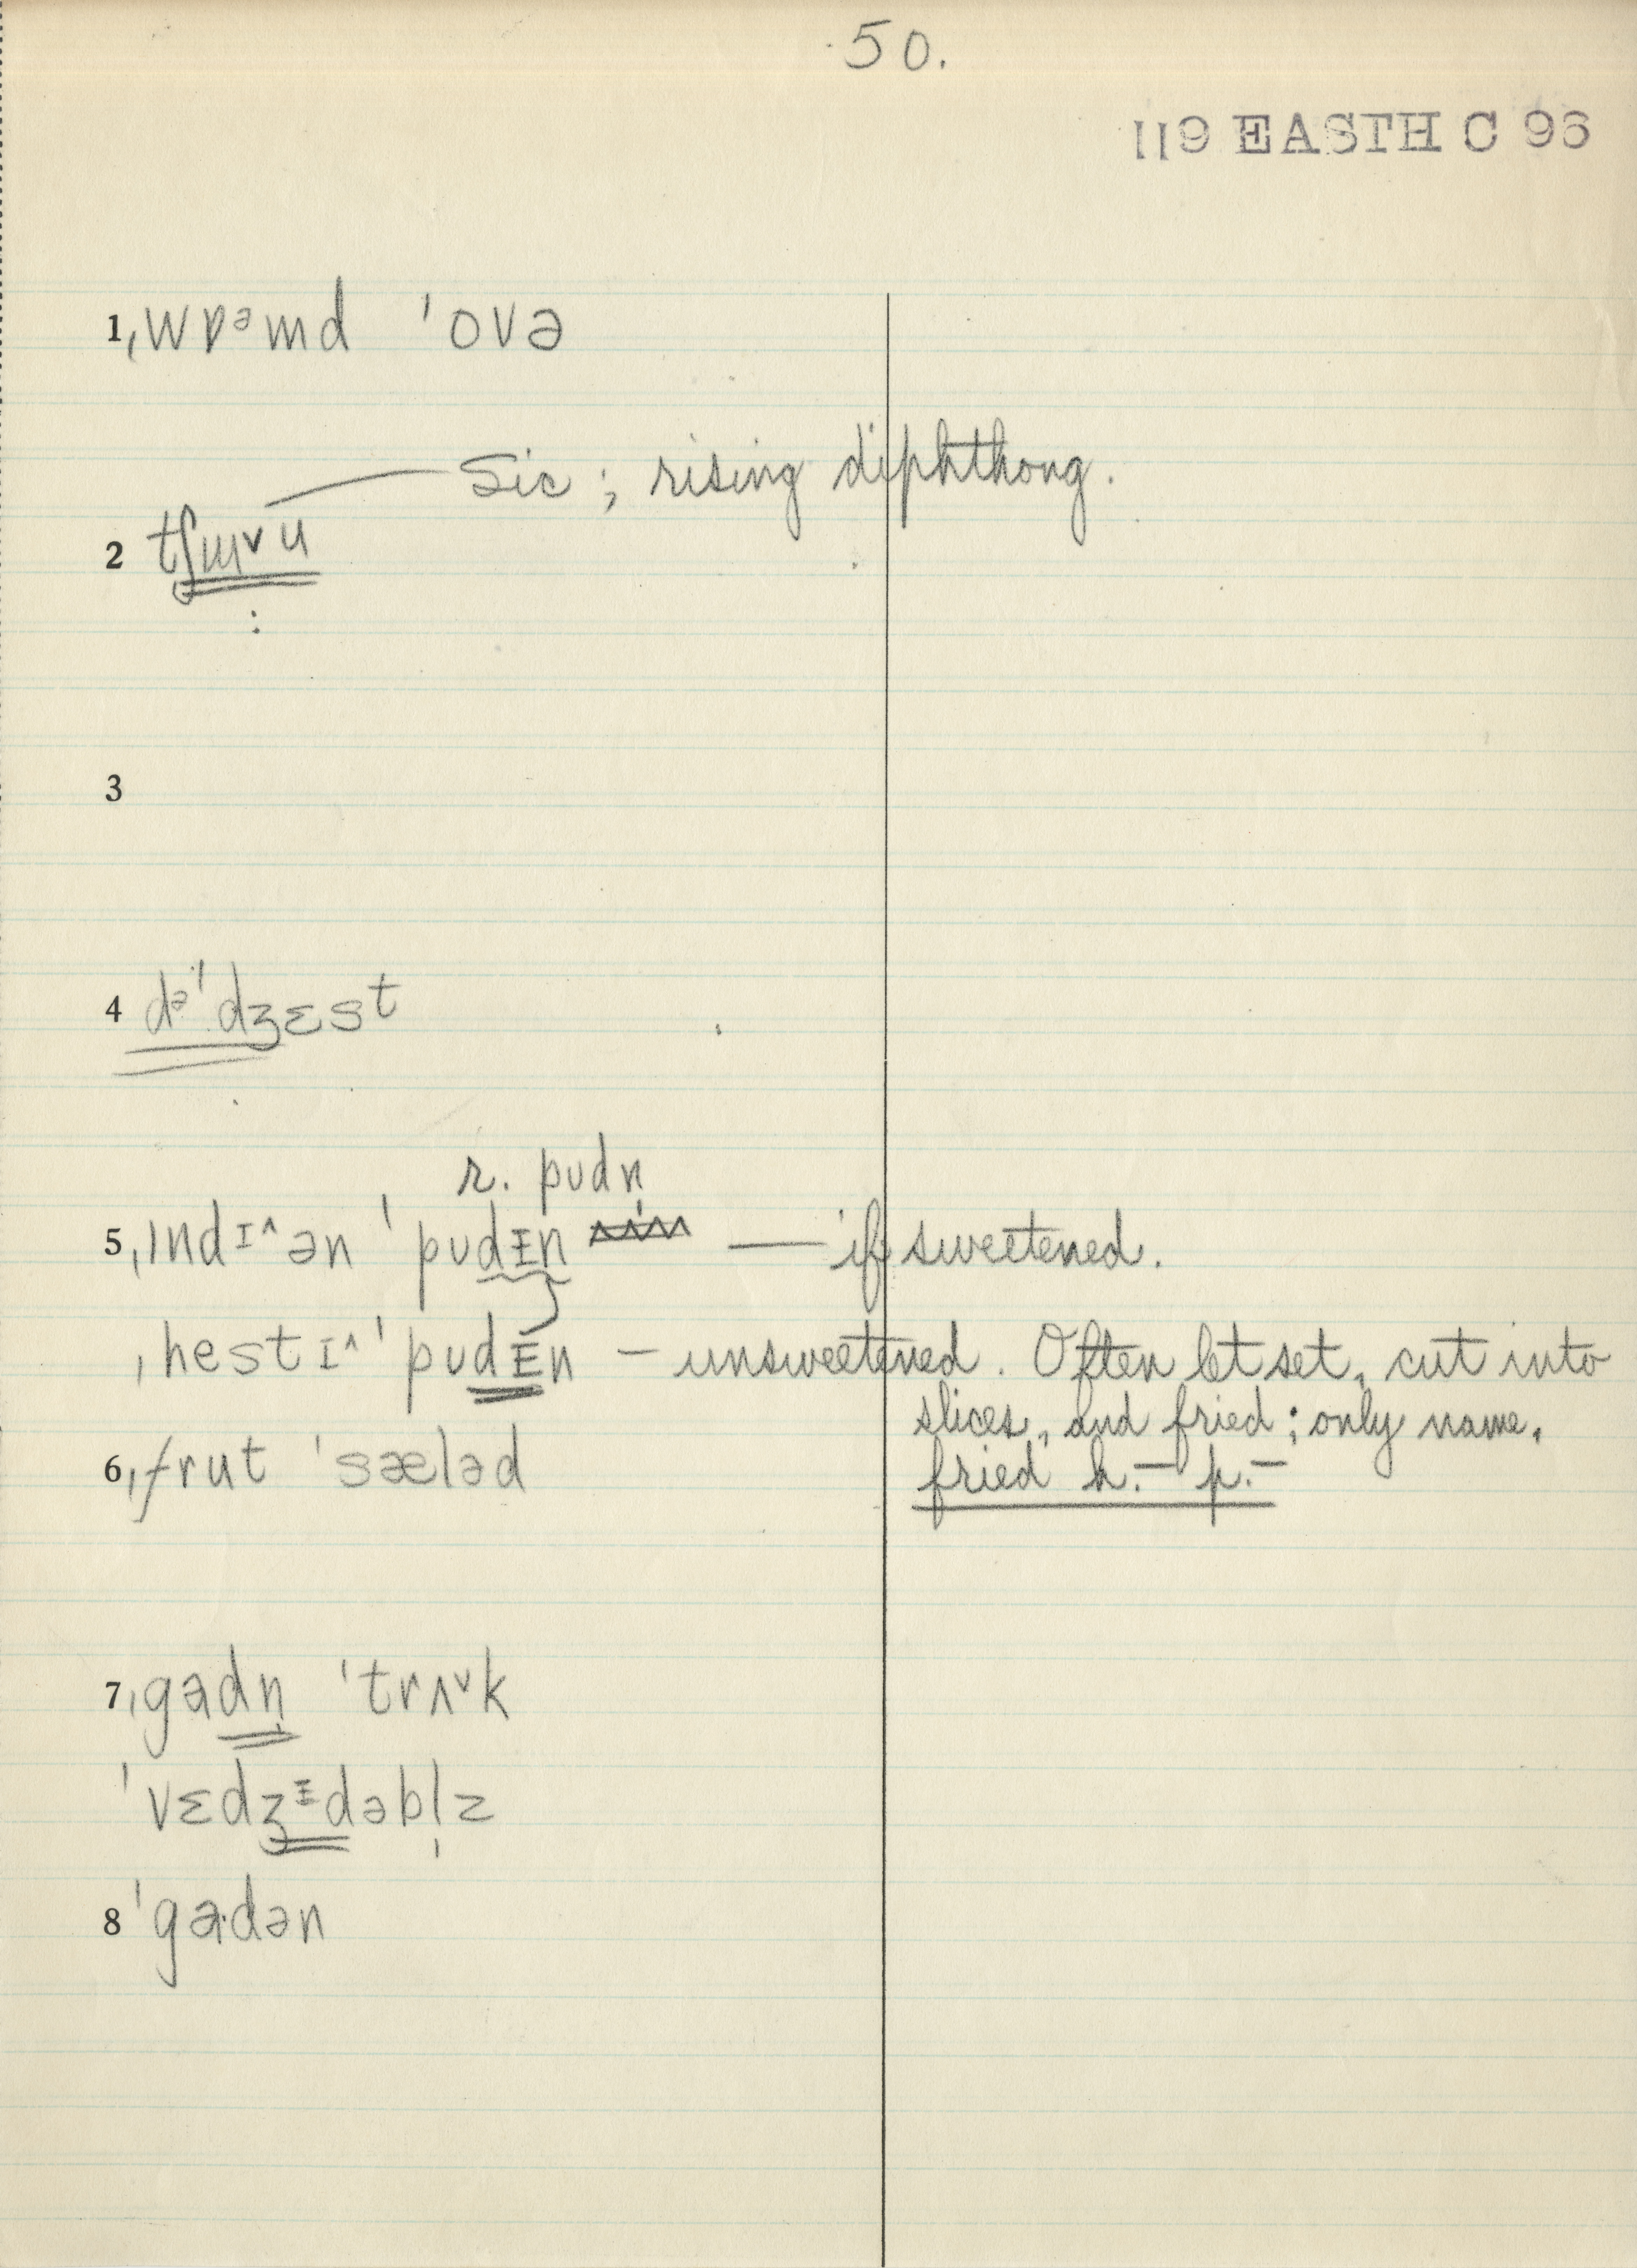 50.
119 EASTH C 96
1 ˌwɒᵊmd ˈovə
Sic; rising diphthong.
2 tʃɯᵛu
:
3
4 dᵊˈdʒɛst
r. pʊdn̩
5 ˌɪndɪ^ən ˈpʊdɪn — if sweetened.
ˌhestɪ^ ˈpʊdɪn – unsweetened. Often let set, cut into
slices, and fried; only name,
fried h.– p.–
6 ˌfrut ˈsæləd
7 ˌgadn̩ ˈtrʌᵛk
ˈvɛdʒᵻdəbl̩z
8 ˈgaˑdən